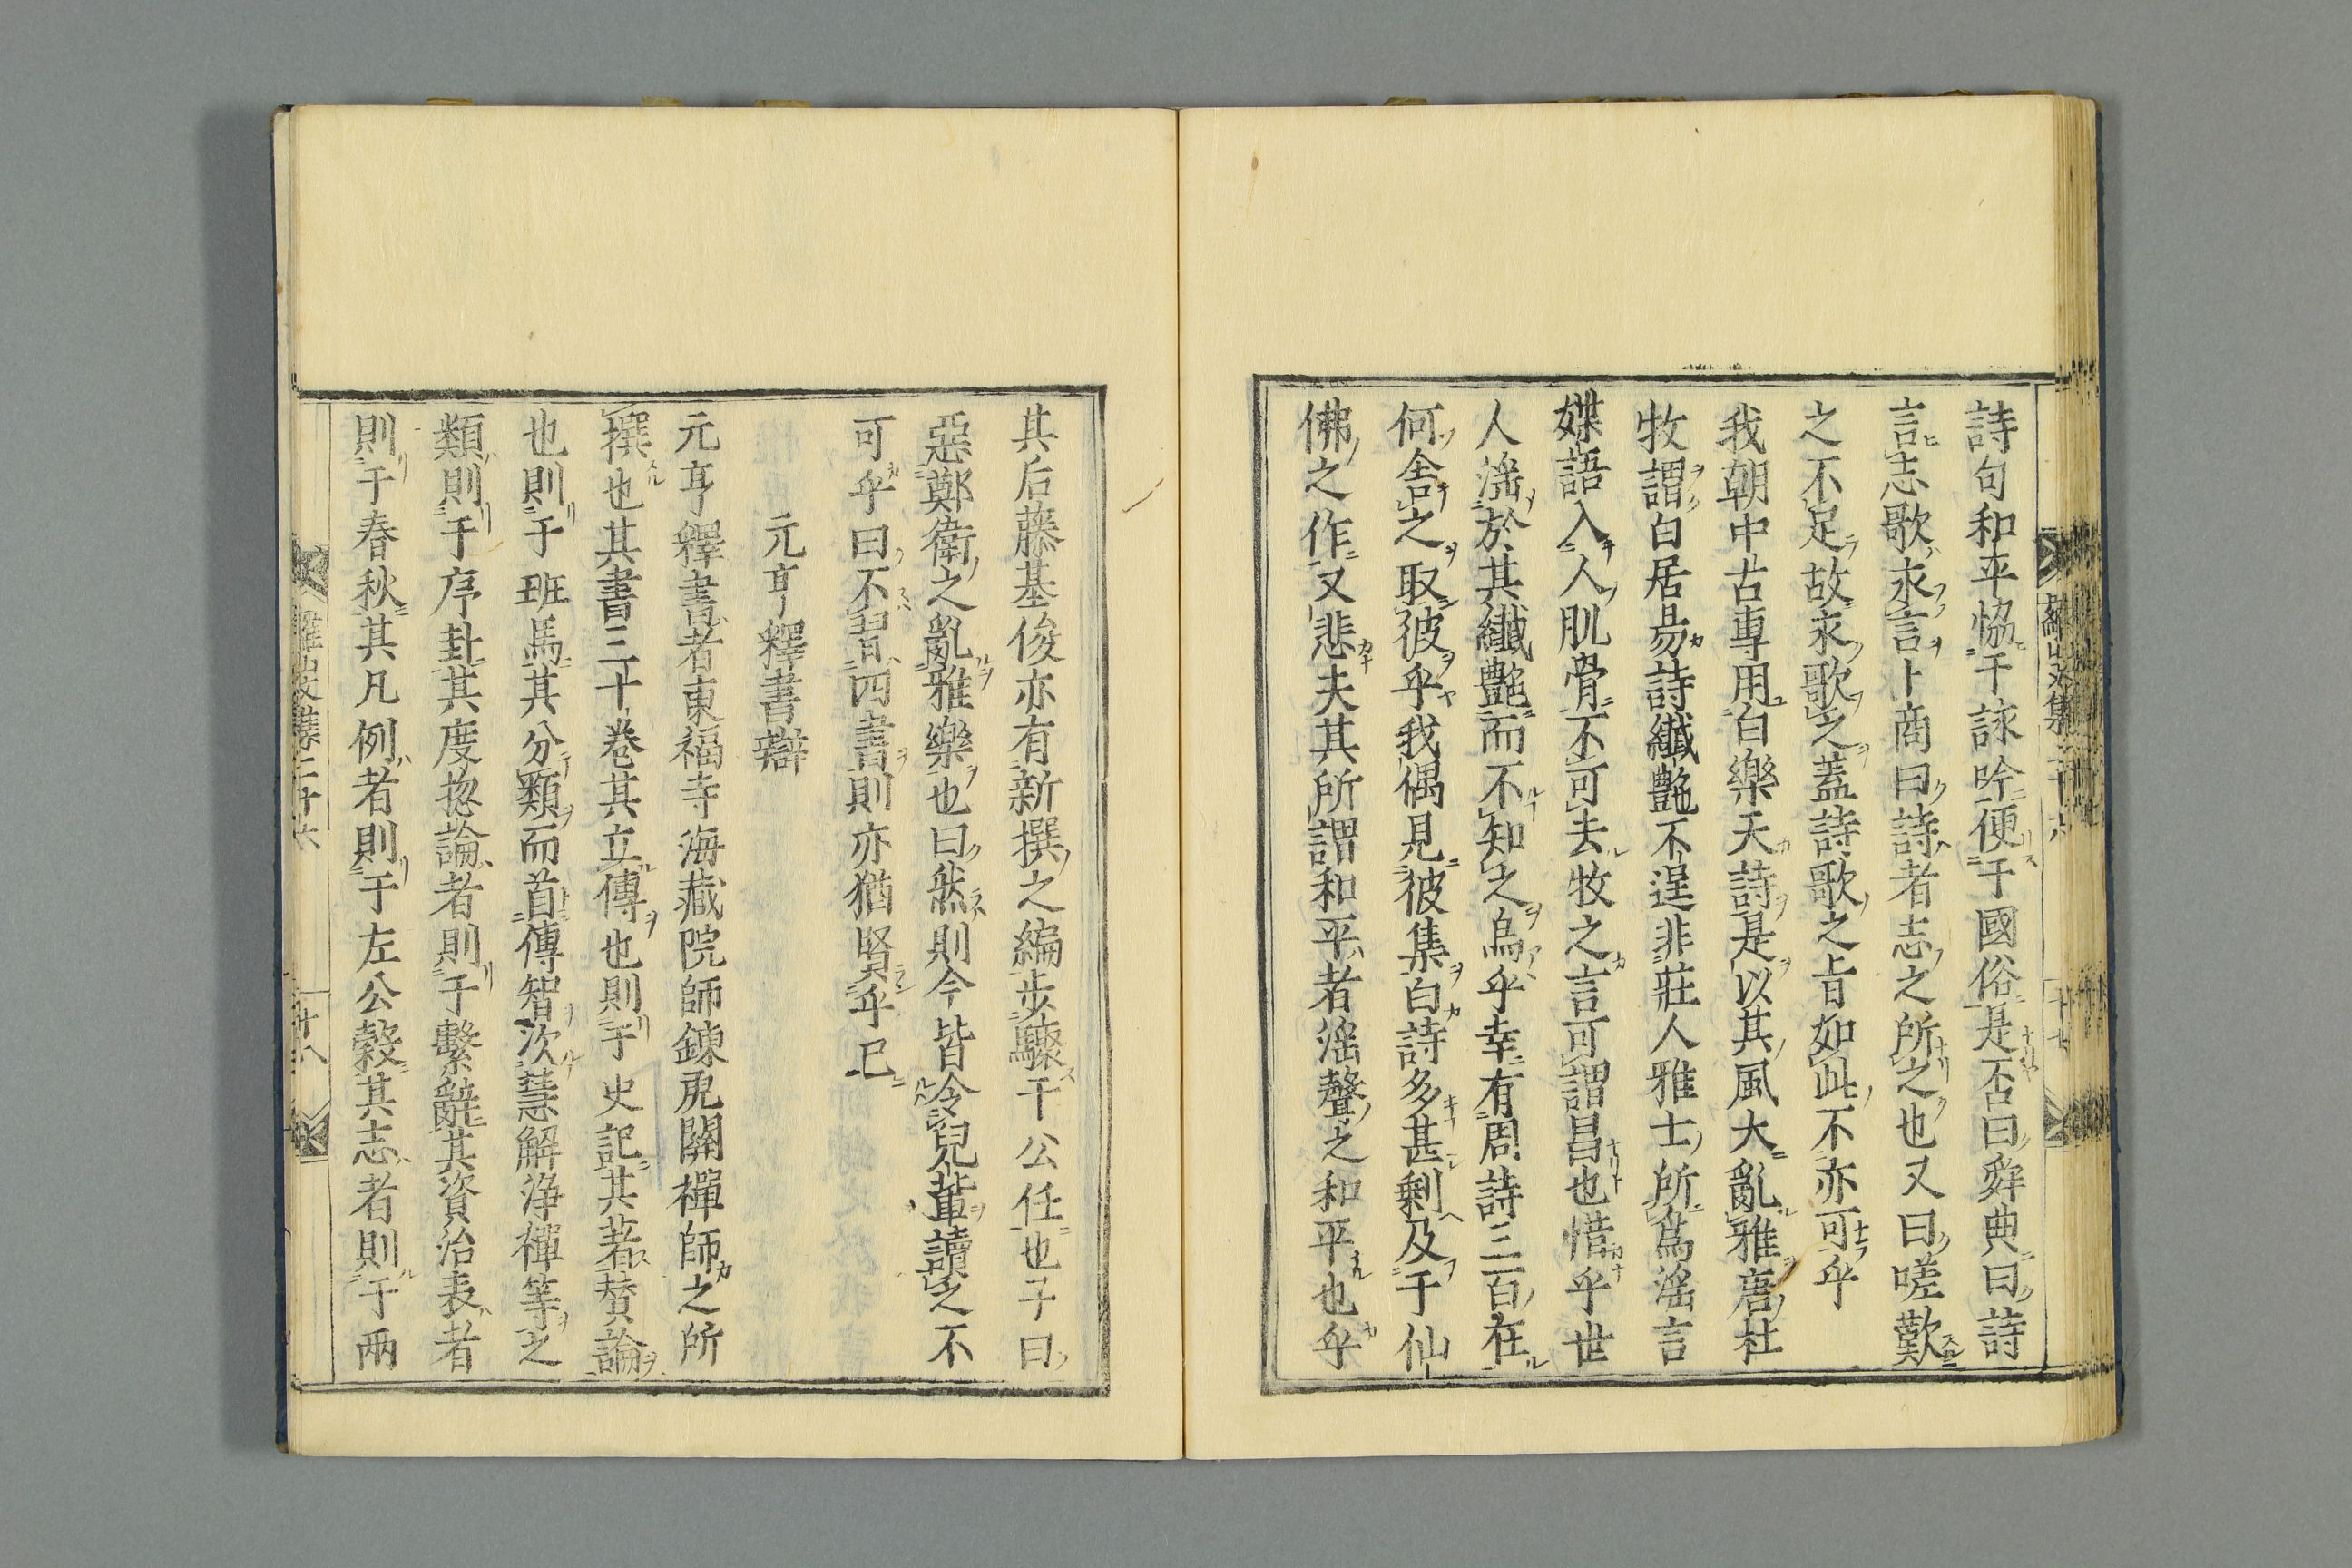 詩句和平恊于詠吟便于國俗是否曰舜典曰詩
言志歌永言卜商曰詩者志之所之也又曰嗟歎
之不足故永歌之蓋詩歌之㫖如此不亦可乎
我朝中古專用白樂天詩是以其風大亂雅唐杜
牧謂白居昜詩纖艶不逞非莊人雅士所爲滛言
媟語入人肌骨不可去牧之言可謂昌也惜乎世
人滛於其纖艶而不知之烏乎幸有周詩三百在
何舎之取彼乎我偶見彼集白詩多甚剰及于仙
佛之作又悲夫其所謂和平者滛聲之和平也乎
其后藤基俊亦有新撰之編步驟干公任也子曰
惡鄭衛之亂雅樂也曰然則今皆令兒輩讀之不
可乎曰不習四書則亦猶賢乎已
元亨釋書辯
元亨釋書者東福寺海藏院師錬乕關禪師之所
撰也其書三十卷其立傳也則于史記其著賛論
也則于班馬其分類而首傳智次慧解浄禪等之
類則于序卦其度揔論者則于繫辭其資治表者
則于春秋其凡例者則于左公穀其志者則于兩
羅山文集二十六
十八
羅山文集二十六
十七